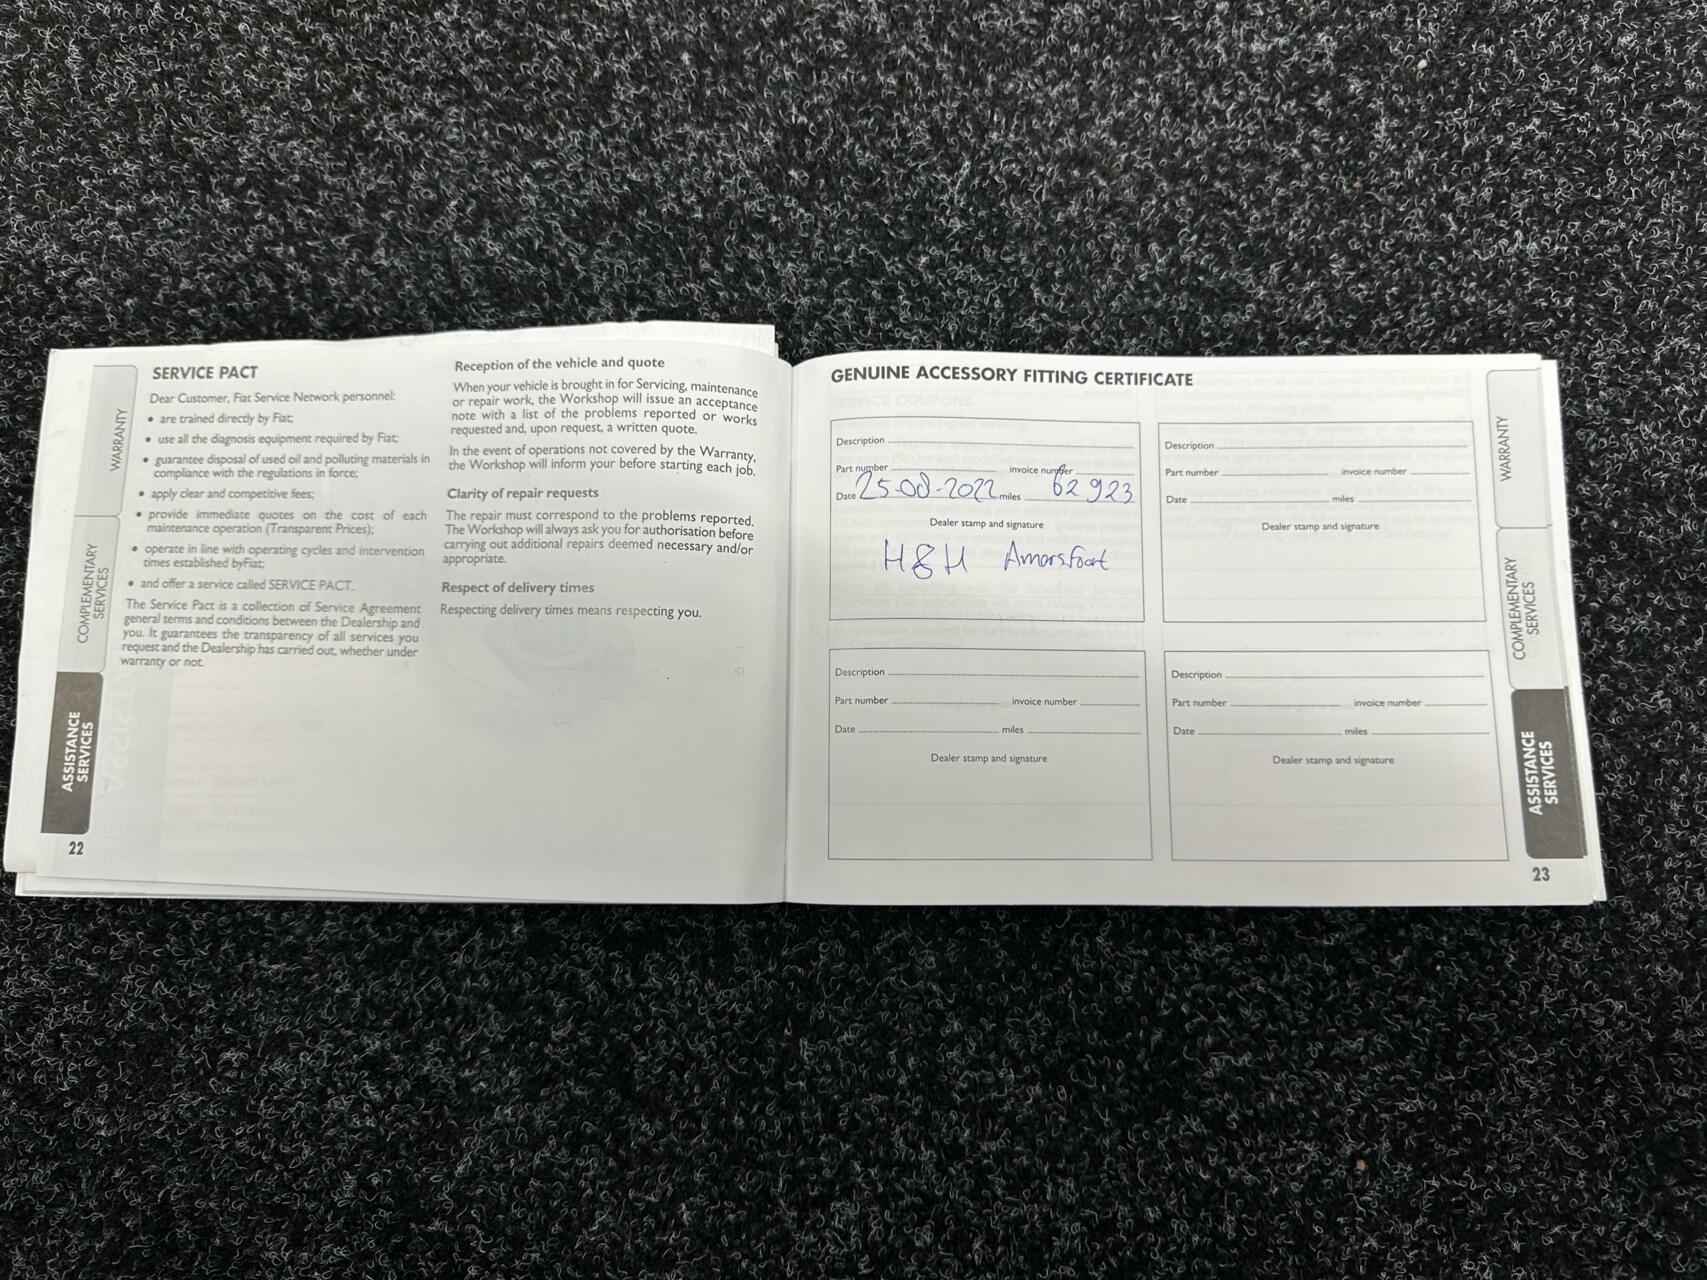 SERVICE PACT
Dear Customer, Fiat Service Network personnel:
• are trained directly by Fiat;
• use all the diagnosis equipment required by Fiat;
• guarantee disposal of used oil and polluting materials in
compliance with the regulations in force;
• apply clear and competitive fees;
• provide immediate quotes on the cost of each
maintenance operation (Transparent Prices);
• operate in line with operating cycles and intervention
times established byFiat;
• and offer a service called SERVICE PACT.
The Service Pact is a collection of Service Agreement
general terms and conditions between the Dealership and
you. It guarantees the transparency of all services you
request and the Dealership has carried out, whether under
warranty or not.
Reception of the vehicle and quote
When your vehicle is brought in for Servicing, maintenance
or repair work, the Workshop will issue an acceptance
note with a list of the problems reported or works
requested and, upon request, a written quote.
In the event of operations not covered by the Warranty,
the Workshop will inform your before starting each job.
Clarity of repair requests
The repair must correspond to the problems reported.
The Workshop will always ask you for authorisation before
carrying out additional repairs deemed necessary and/or
appropriate.
Respect of delivery times
Respecting delivery times means respecting you.
WARRANTY
COMPLEMENTARY
SERVICES
ASSISTANCE
SERVICES
22
GENUINE ACCESSORY FITTING CERTIFICATE
Description
Part number invoice number
Date 25-08-2022 miles 62923
Dealer stamp and signature
H&H Amersfoort
Description
Part number invoice number
Date miles
Dealer stamp and signature
Description
Part number invoice number
Date miles
Dealer stamp and signature
Description
Part number invoice number
Date miles
Dealer stamp and signature
WARRANTY
COMPLEMENTARY
SERVICES
ASSISTANCE
SERVICES
23